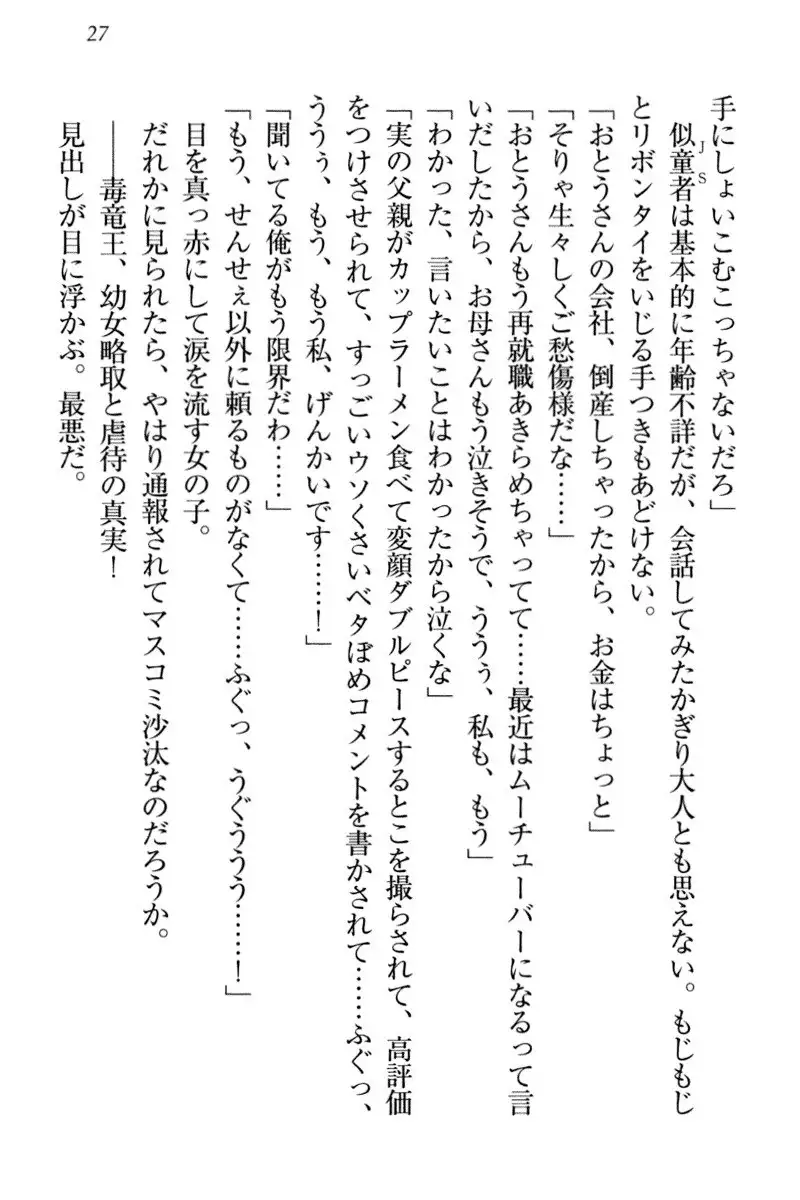 27
手にしょいこむこっちゃないだろ」
　似童者は基本的に年齢不詳だが、会話してみたかぎり大人とも思えない。もじもじ
JS
とリボンタイをいじる手つきもあどけない。
「おとうさんの会社、倒産しちゃったから、お金はちょっと」
「そりゃ生々しくご愁傷様だな……」
「おとうさんもう再就職あきらめちゃってて……最近はムーチューバーになるって言
いだしたから、お母さんもう泣きそうで、ううぅ、私も、もう」
「わかった、言いたいことはわかったから泣くな」
「実の父親がカップラーメン食べて変顔ダブルピースするとこを撮らされて、高評価
をつけさせられて、すっごいウソくさいベタぼめコメントを書かされて……ふぐっ、
ううぅ、もう、もう私、げんかいです……！」
「聞いてる俺がもう限界だわ……」
「もう、せんせぇ以外に頼るものがなくて……ふぐっ、うぐううう……！」
　目を真っ赤にして涙を流す女の子。
　だれかに見られたら、やはり通報されてマスコミ沙汰なのだろうか。
　――毒竜王、幼女略取と虐待の真実！
　見出しが目に浮かぶ。最悪だ。